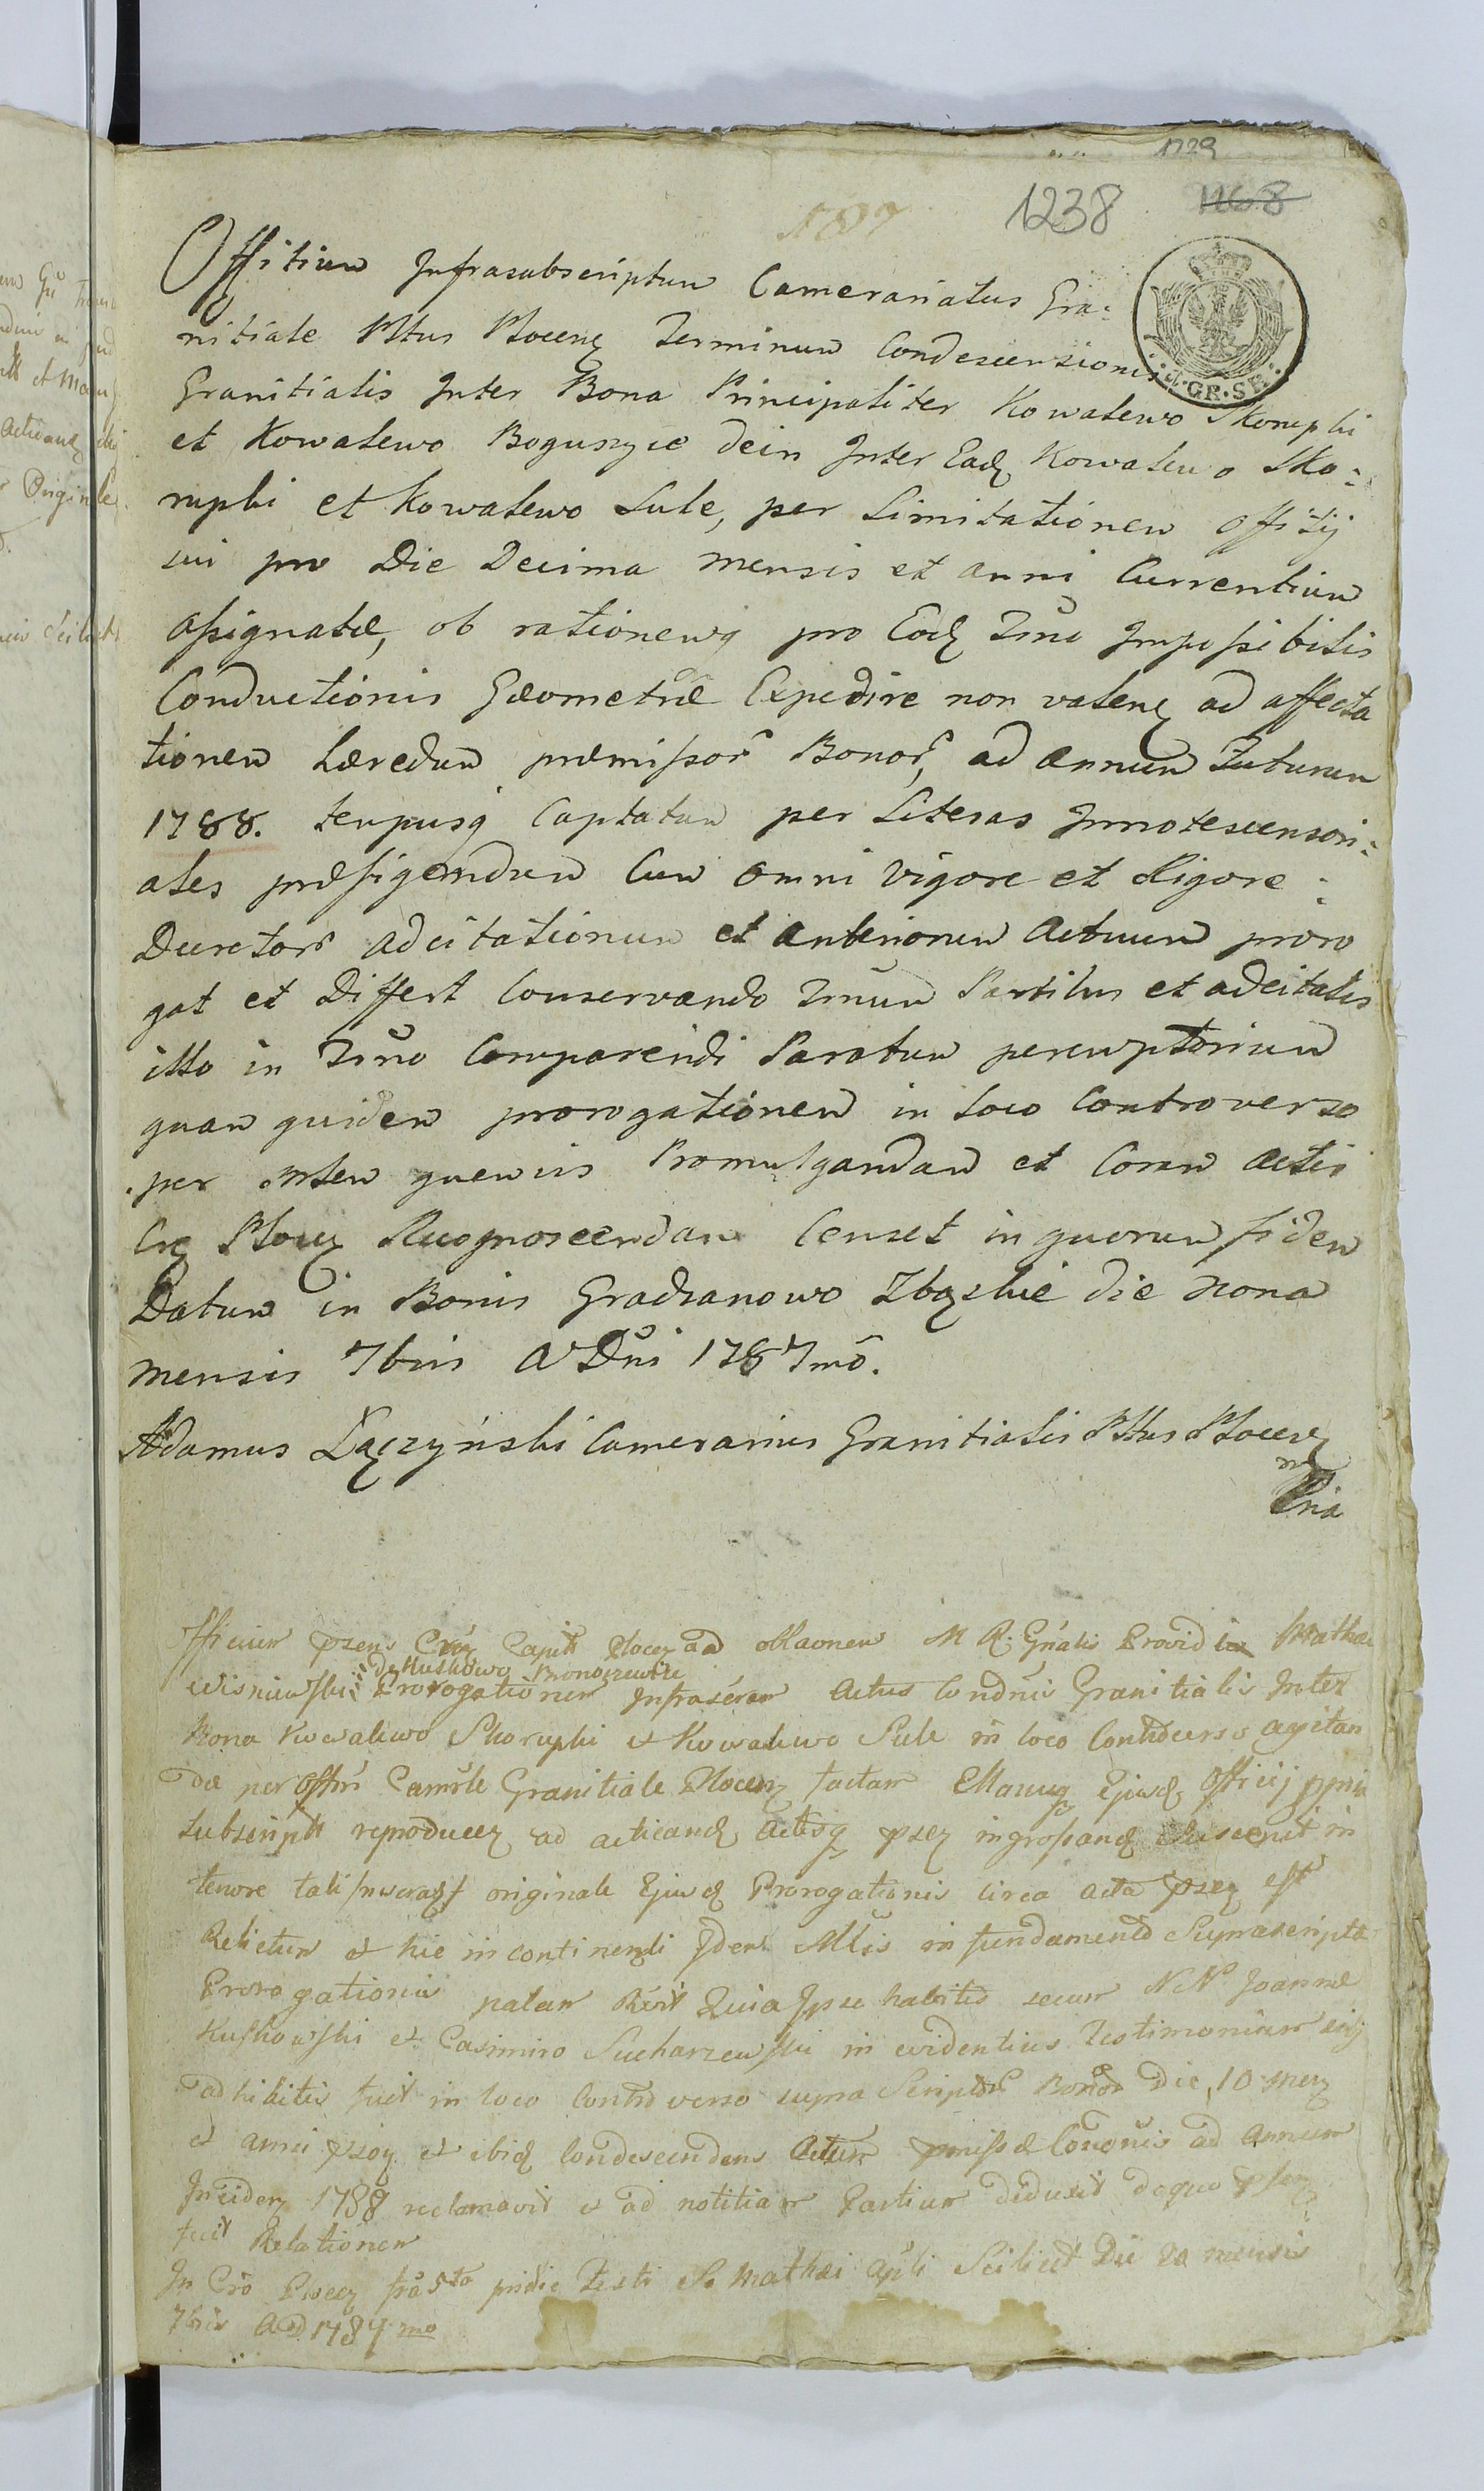 1729
187 1238 1268
Offitium Infrasubscriptum Camerariatus Gra:
nitiale Pttus Plocen Terminum Condescensionis
Granitialis Inter Bona Principaliter Kowalewo Skorupki
et Kowalewo Boguszyce dein Inter Ead Kowalewo Sko:
rupki et Kowalewo Sule, per Limitationem offitij
sui pro Die Decima mensis et anni Currentium
assignatæ, ob rationemq pro Eod Tmno Impossibilis
Conductionis Gæometræ Expedire non valens ad affecta
tionem hæredum præmissor Bonor, ad annum Futurum
1788. tempusq Captatum per Literas Innotescensori:
ales præfigendum Cum omni Vigore et Rigore :
Decretor adcitationum et anteriorum Actuum proro
gat et Differt Conservando Tmnum Partibus et adcitatis
illo in Tmno Comparendi Paratum peremptorium
quam quidem prorogationem in Loco Controverso
per quemvis Promulgandam et Coram Actis
Cr Ploc Recognoscendam Censet in quorum fidem
Datum in Bonis Gradzanowo Zbęskie die nona
mensis 7bris A Dni 1787mo.
Adamus Łączyński Camerarius Granitialis Pttus Plocen
mp
·A·GR·SR·
Officium psens Capit Plocen ad oblaonem M R. Gnalis Provid Mathæi
de Kuskowo Bronoszewice
Wisniewski Prorogationem Infraseram Actus Condnis Granitialis Inter
Bona Kowalewo Skorupki et Kowalewo Sule in loco Controverso agitan
dæ per Offm Camrle Granitiale Plocen factam Manuq Ejusd Officij ppria
subscript reproducen ad acticand Actisq psen ingrossand Suscepit in
tenore tali originale Ejusd Prorogationis circa acta psen est
Relictum et hic in continenti Idem Mtis in fundamento Suprascripta
Prorogationis palam Rcvit Quia Ipse habitis secum NN Joanne
Kuskowski et Casimiro Sucharzewski in evidentius Testimonium
adhibitis fuit in loco Controverso supra Script Bonor Die 10 mens
et anni psen et ibiq Condescendens Actum pmiss Conornis ad Annum
Inciden 1788 reclamavit et ad notitiam Partium deduxit deque psen
fecit Relationem
In Cro Plocen fra 5ta pridie Festi S Mathæi Apli Scilicet Die 20 mensis
7bris AD 1787 mo